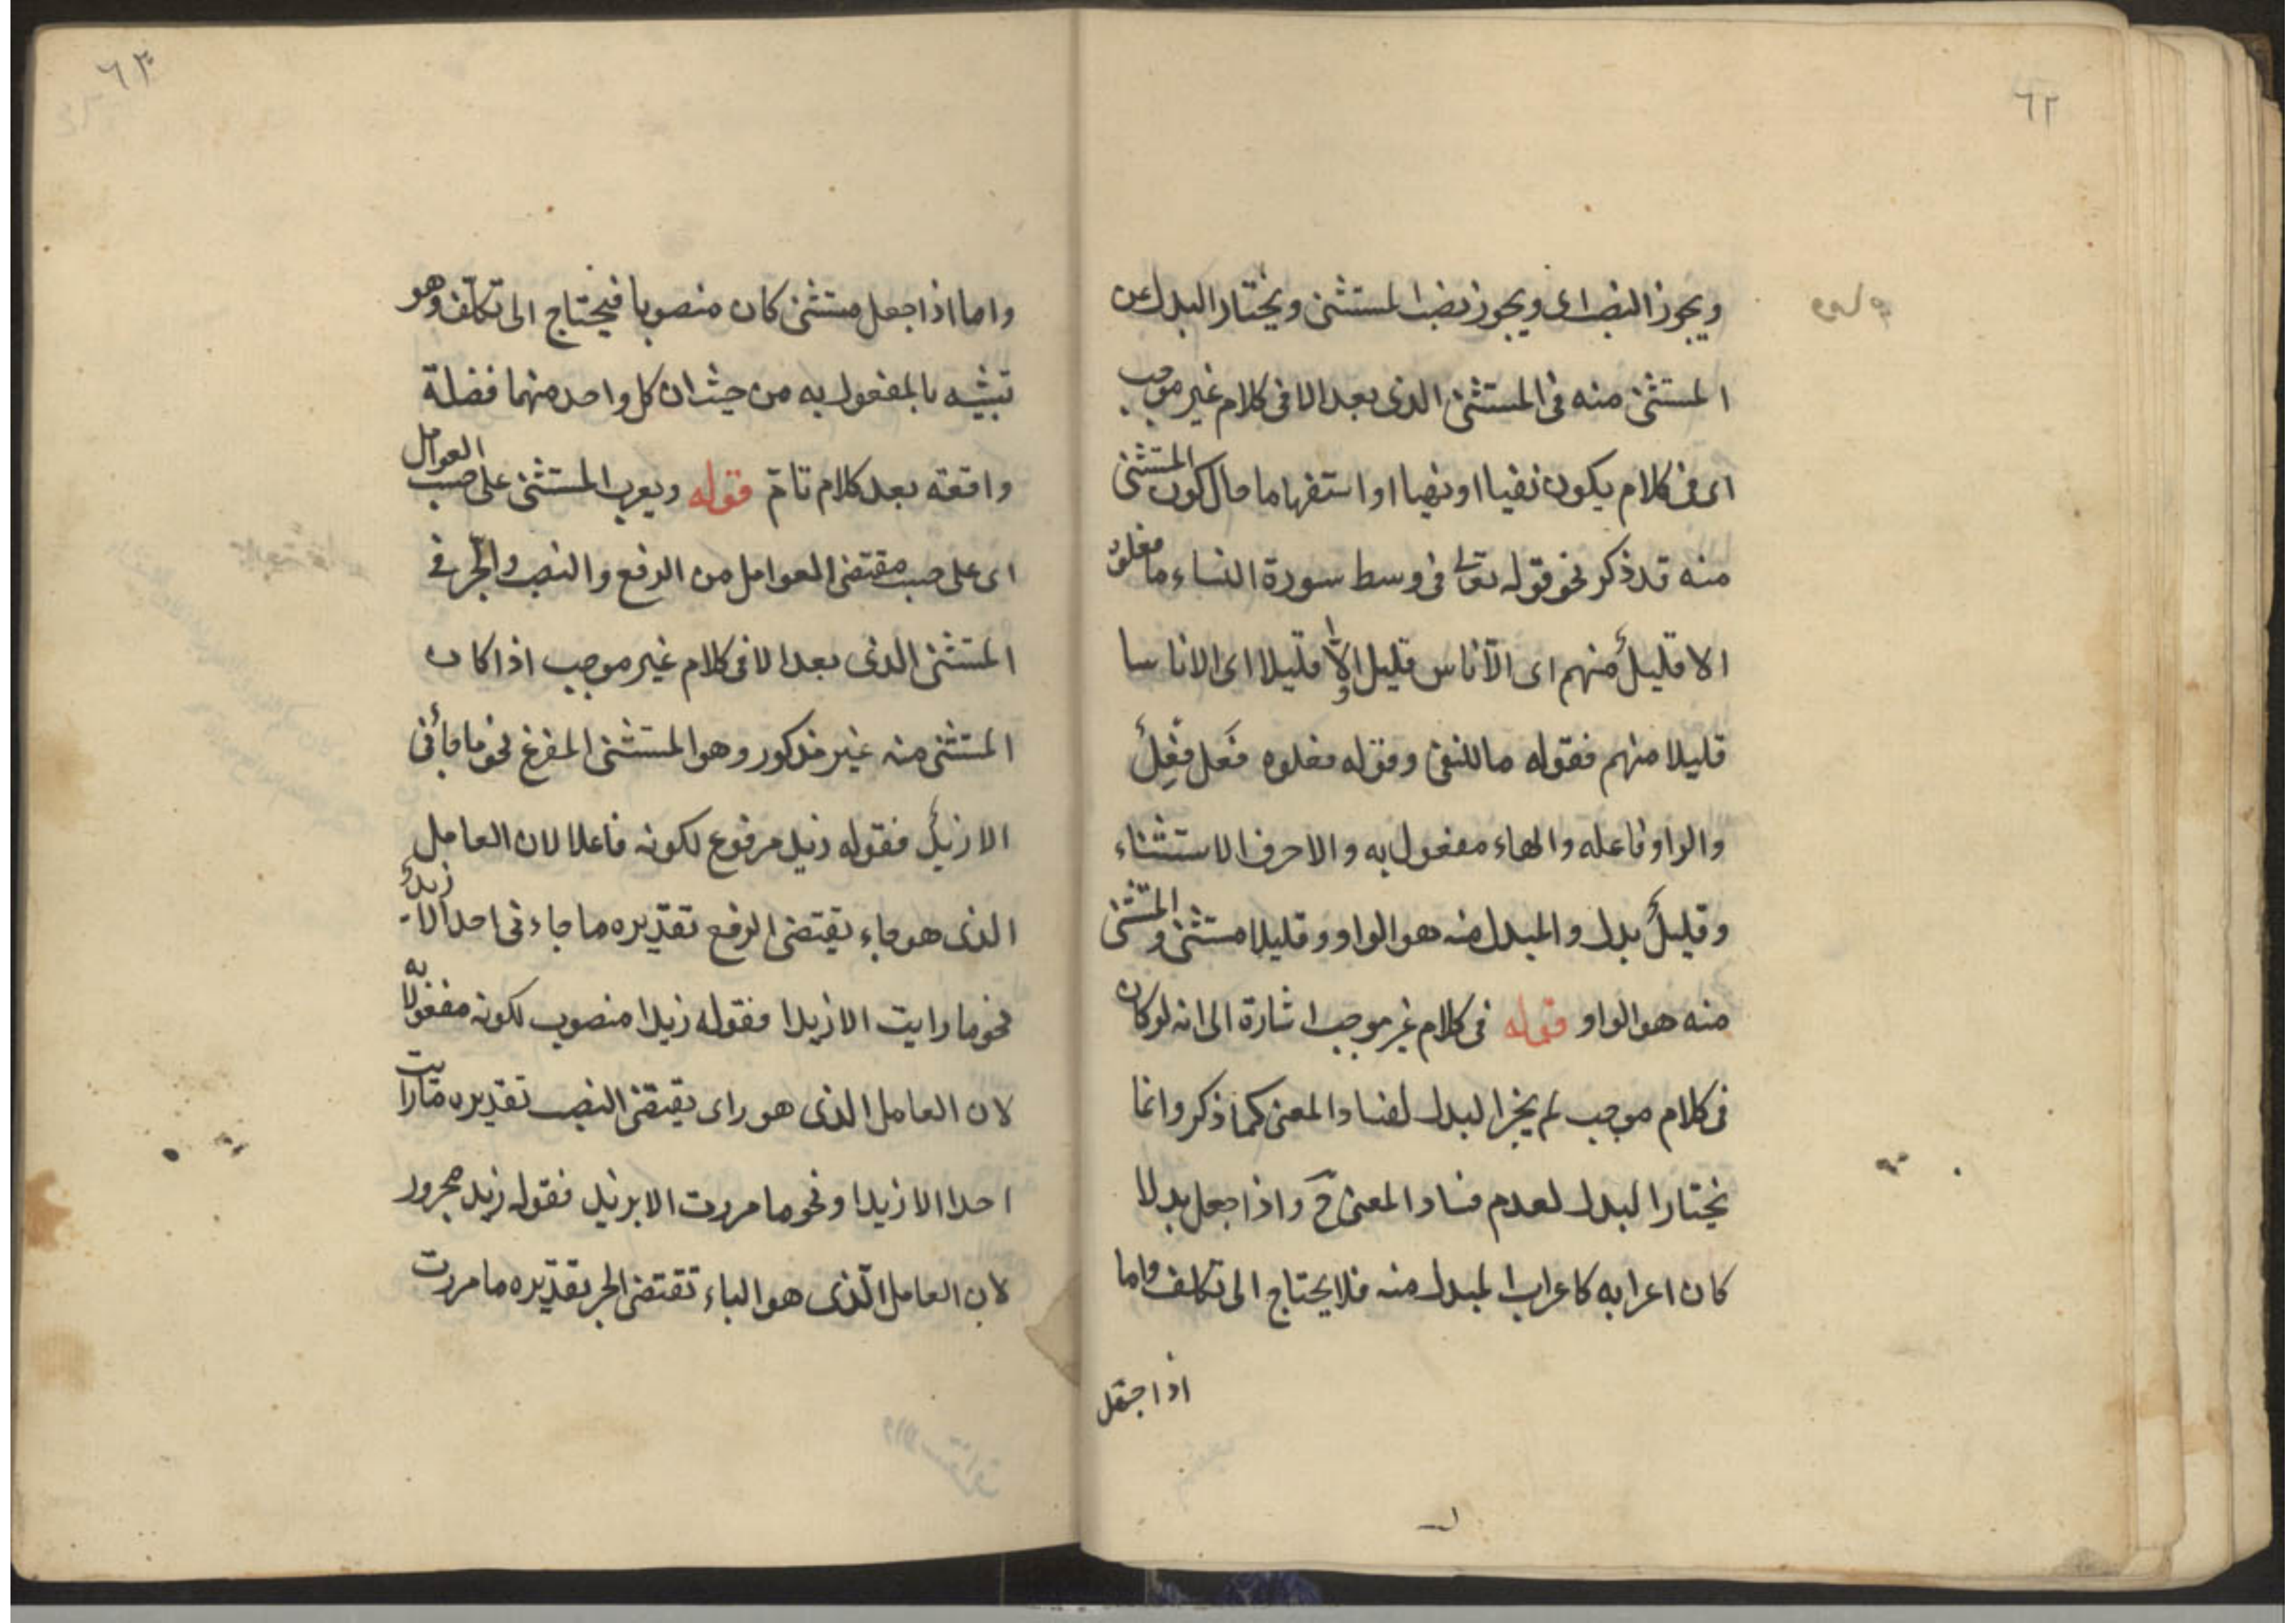 ٦٢
قوله
ويجوز النصب اى ويجوز نصب المستثنى ويختار البدل عن
المستثنى منه فى المستثنى الذى بعد الا فى كلام غير موجب
اى فى كلام يكون نفيا او نهيا او استفهاما حال كون المستثنى
منه قد ذكر نحو قوله تعالى فى وسط سورة النساء ما فعلوه
الا قليلٌ منهم اى الّا ناس قليل والّا قليلا اى الا ناسا
قليلا منهم فقوله ما للنفى وقوله فعلوه فَعَل فِعْلٌ
والواو فاعله والهاء مفعول به والا حرف الاستثناء
وقليلٌ بدل والمبدل منه هو الواو وقليلا مستثنى والمستثنى
منه هو الواو قوله فى كلام غير موجب اشارة الى انه لو كان
فى كلام موجب لم يجز البدل لفساد المعنى كما ذكر وانما
يختار البدل لعدم فساد المعنى ح واذا جعل بدلا
كان اعرابه كاعراب المبدل منه فلا يحتاج الى تكلف واما
اذا جعل
٦٣
واما اذا جعل مستثنى كان منصوبا فيحتاج الى تكلّف وهو
تشبيه بالمفعول به من حيث ان كل واحد منهما فضلة
واقعة بعد كلام تامّ قوله ويعرب المستثنى على حسب العوامل
اى على حسب مقتضى العوامل من الرفع والنصب والجّر فى
المستثنى الذى بعد الا فى كلام غير موجب اذا كان
المستثنى منه غير مذكور وهو المستثنى المفرغ نحو ما جائنى
الا زيدٌ فقوله زيد مرفوع لكونه فاعلا لان العامل
الذى هو جاء يقتضى الرفع تقديره ما جاءنى احد الا زيدٌ
نحو ما رايت الا زيدا فقوله زيدا منصوب لكونه مفعولا به
لان العامل الذى هو راى يقتضى النصب تقديره ما رايت
احدا الا زيدا ونحو ما مررت الا بزيد فقوله زيد مجرور
لان العامل الّذى هو الباء تقتضى الجر تقديره ما مررت